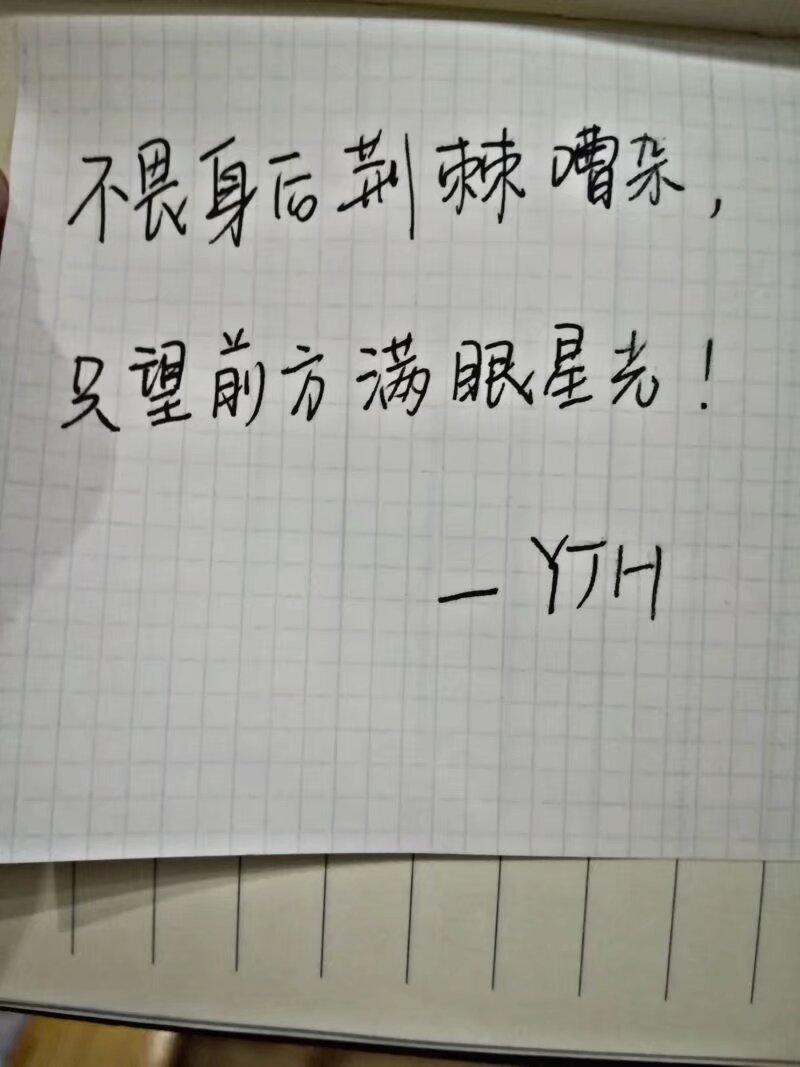 不畏身后荆棘嘈杂，
只望前方满眼星光！
— YJH